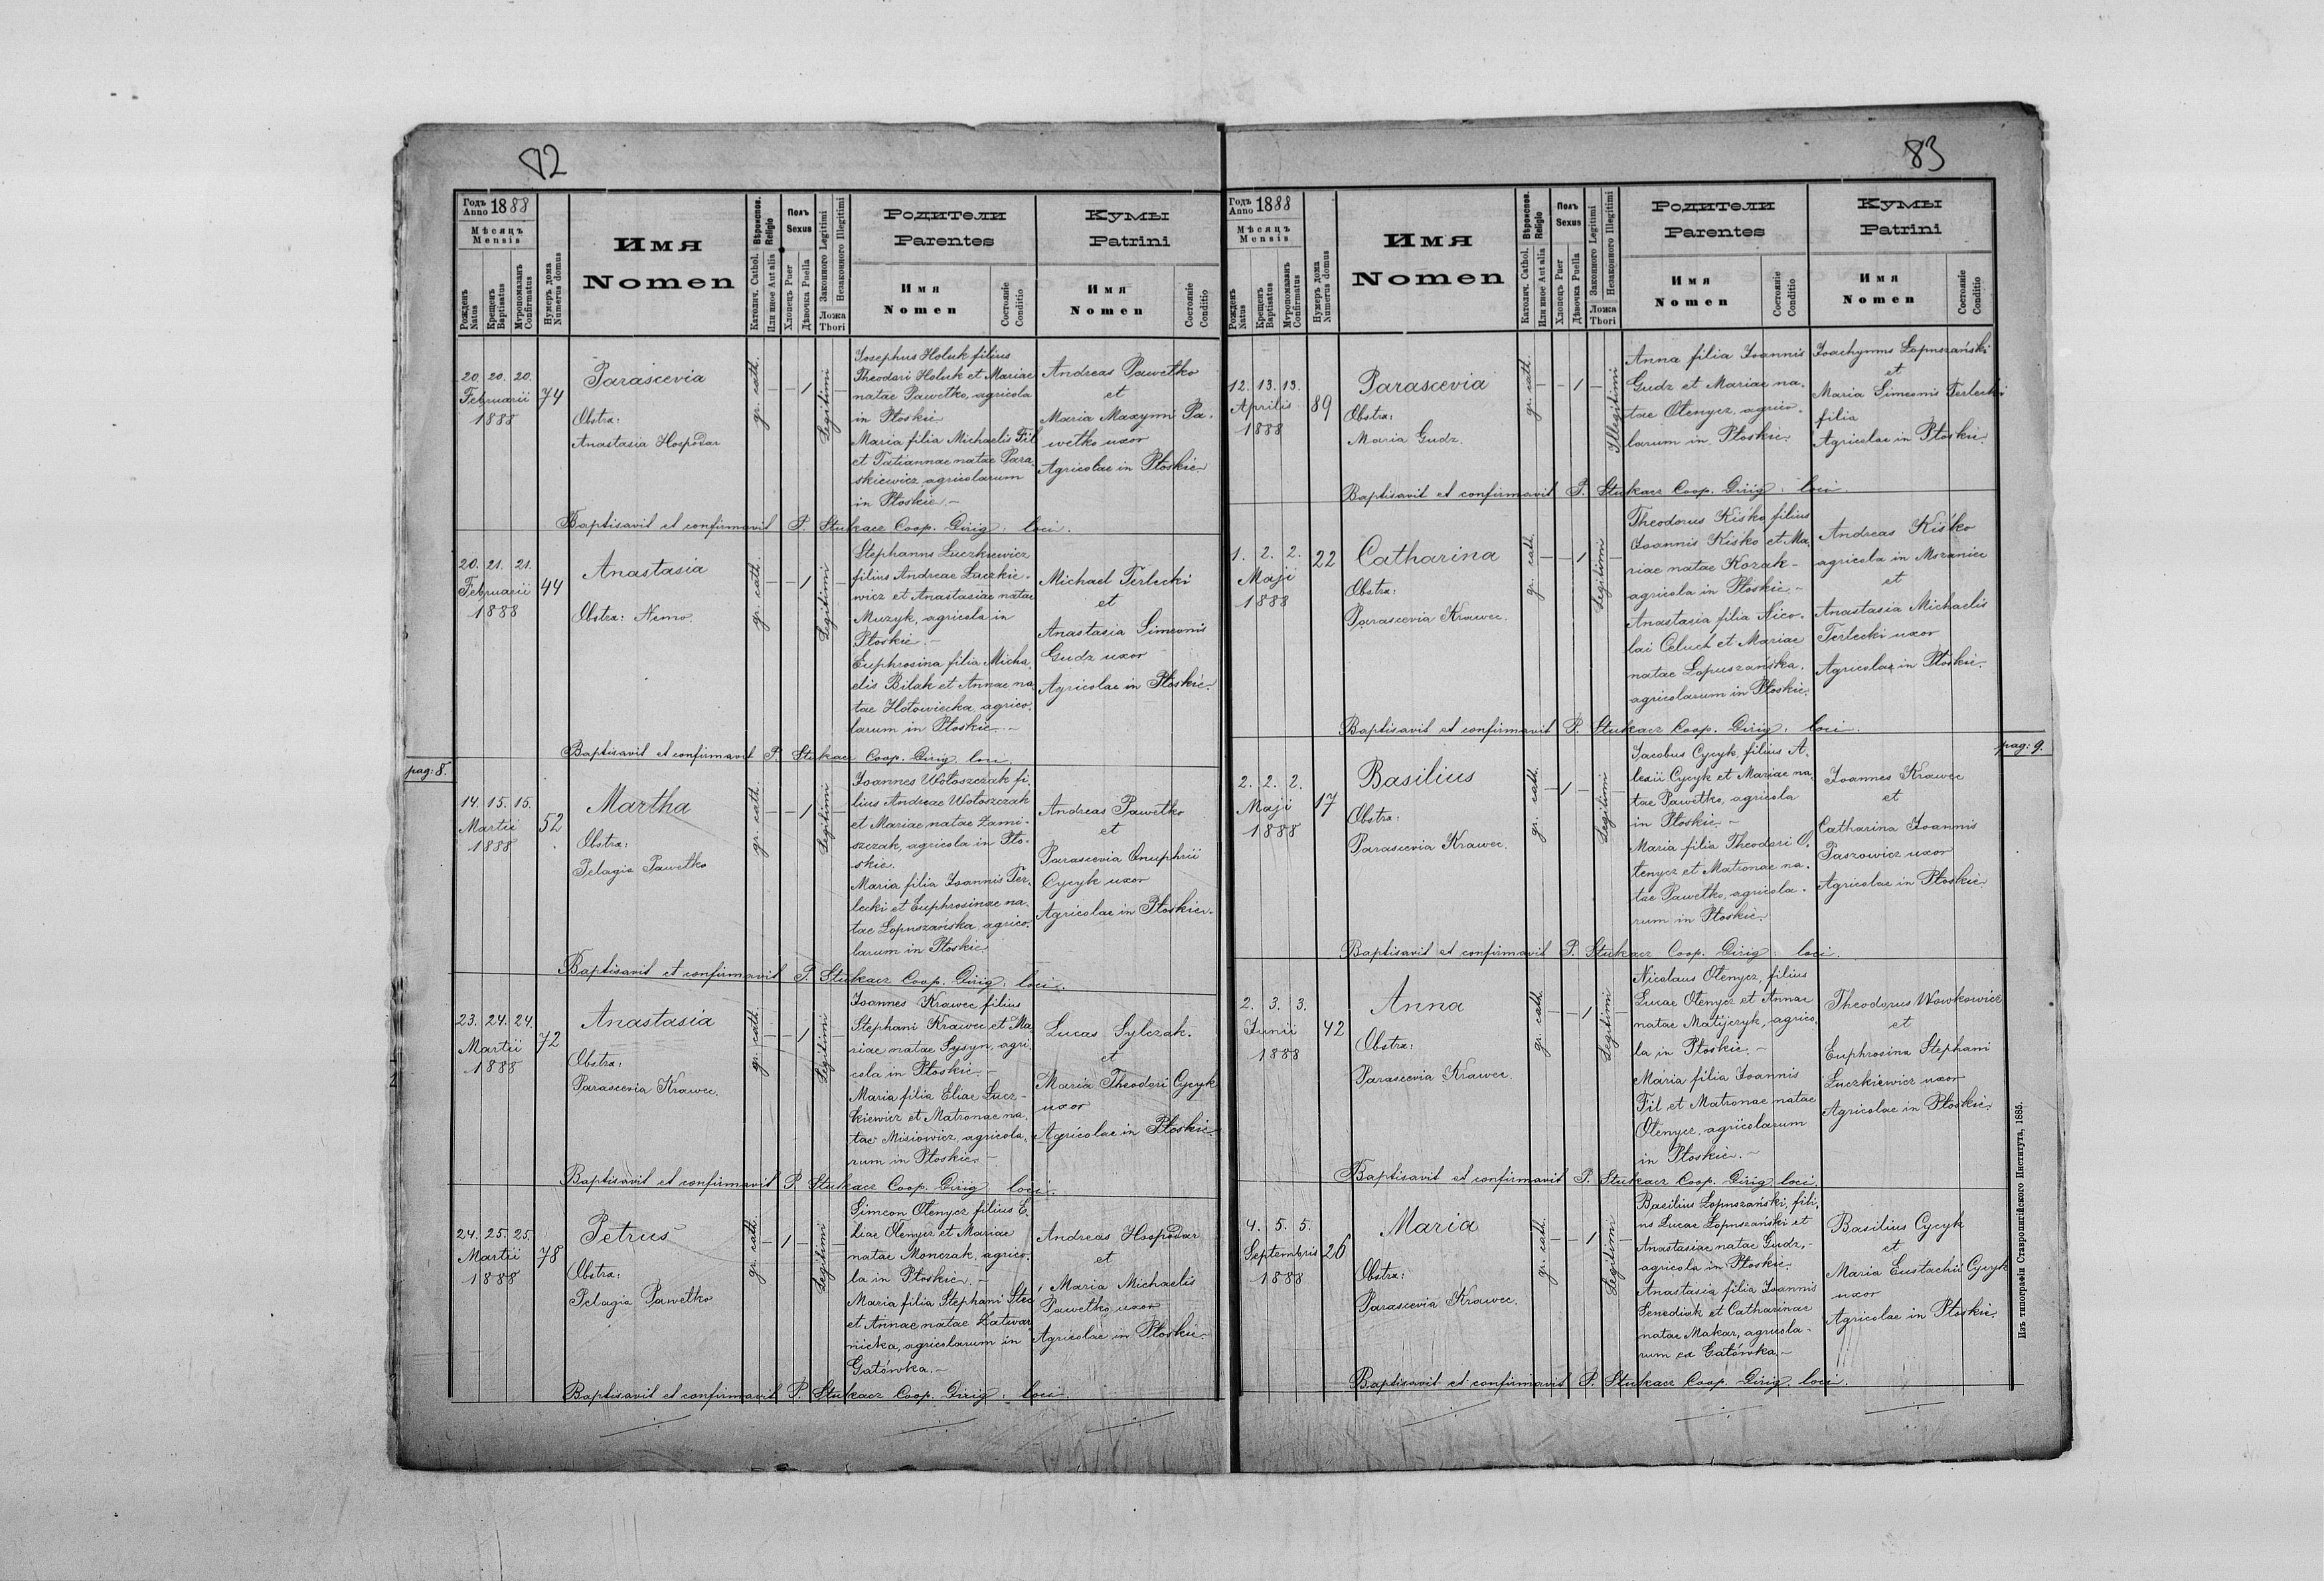 82
Годъ Anno 1888
Мѣсяцъ Mensis
Рожденъ Natus
Крещенъ Baptisatus
Мѵропомазанъ Confirmatus
Нумеръ дома Numerus domus
Имя
Nomen
Католич. Cathol.
Или иное Aut alia
Вѣроиспов. Religio
Полъ
Sexus
Хлопецъ Puer
Дѣвочка Puella
Законного Legitimi
Незаконного Illegitimi
Ложа Thori
Родители
Parentes
Имя
Nomen
Состояніе Conditio
Кумы
Patrini
Имя
Nomen
Состояніе Conditio
20. 20. 20.
Februarii
1888
74
Parascevia
Obstx:
Anastasia Hospodar
gr. cath.
– – 1 –
Legitimi
Josephus Holuk filius
Theodori Holuk et Mariae
natae Pawełko, agricola
in Płoskie
Maria filia Michaelis Fil
et Tatiannae natae Para-
skiewicz, agricolarum
in Płoskie. –
Andreas Pawełko
et
Maria Maxymi Pa-
wełko uxor
Agricolae in Płoskie
Baptisavit et confirmavit P. Stukacz Coop. Dirig. loci.
20. 21. 21.
Februarii
1888
44
Anastasia
Obstx: Nemo.
gr. cath.
– – 1 –
Legitimi
Stephanus Łuczkiewicz
filius Andreae Łuczkie-
wicz et Anastasiae natae
Muzyk, agricola in
Płoskie –
Euphrosina filia Micha-
elis Bilak et Annae na-
tae Hołowiecka, agrico-
larum in Płoskie. –
Michael Terlecki
et
Anastasia Simeonis
Gudz uxor
Agricolae in Płoskie.
Baptisavit et confirmavit P. Stukacz Coop. Dirig. loci
pag: 8.
14. 15. 15.
Martii
1888
52
Martha
Obstx:
Pelagia Pawełko
gr. cath.
– – 1 –
Legitimi
Joannes Wołoszczak fi-
lius Andreae Wołoszczak
et Mariae natae Zami-
szczak, agricola in Pło-
skie.
Maria filia Joannis Ter-
lecki et Euphrosinae na-
tae Łopuszańska, agrico-
larum in Płoskie
Andreas Pawełko
et
Parascevia Onuphrii
Cycyk uxor
Agricolae in Płoskie.
Baptisavit et confirmavit P. Stukacz Coop. Dirig. loci.
23. 24. 24.
Martii
1888
72
Anastasia
Obstx:
Parascevia Krawec.
gr. cath.
– – 1 –
Legitimi
Joannes Krawec filius
Stephani Krawec et Ma-
riae natae Sysyn, agri-
cola in Płoskie. –
Maria filia Eliae Łucz-
kiewicz et Matronae na-
tae Misiowicz, agricola-
rum in Płoskie. –
Lucas Sylczak.
et
Maria Theodori Cycyk
uxor
Agricolae in Płoskie.
Baptisavit et confirmavit P. Stukacz Coop. Dirig. loci.
24. 25. 25.
Martii
1888
78
Petrus
Obstx:
Pelagia Pawełko
gr. cath.
– 1 – –
Legitimi
Simeon Ołenycz filius E-
liae Ołenycz et Mariae
natae Monczak, agrico-
la in Płoskie. –
Maria filia Stephani Stec
et Annae natae Zatwar-
nicka, agricolarum in
Gałówka. –
Andreas Hospodar
et
Maria Michaelis
Pawełko uxor
Agricolae in Płoskie.
Baptisavit et confirmavit P. Stukacz Coop. Dirig. loci.
83
Годъ Anno 1888
Мѣсяцъ Mensis
Рожденъ Natus
Крещенъ Baptisatus
Мѵропомазанъ Confirmatus
Нумеръ дома Numerus domus
Имя
Nomen
Католич. Cathol.
Или иное Aut alia
Вѣроиспов. Religio
Полъ
Sexus
Хлопецъ Puer
Дѣвочка Puella
Законного Legitimi
Незаконного Illegitimi
Ложа Thori
Родители
Parentes
Имя
Nomen
Состояніе Conditio
Кумы
Patrini
Имя
Nomen
Состояніе Conditio
12. 13. 13.
Aprilis
1888
89
Parascevia
Obstx:
Maria Gudz.
gr. cath.
– – 1 –
Illegitimi
Anna filia Joannis
Gudz et Mariae na-
tae Ołenycz, agrico-
larum in Płoskie.
Joachymus Łopuszański
et
Maria Simeonis Terlecki
filia
Agricolae in Płoskie.
Baptisavit et confirmavit P. Stukacz Coop. Dirig. loci.
1. 2. 2.
Maji
1888
22
Catharina
Obstx:
Parascevia Krawec.
gr. cath.
– – 1 –
Legitimi
Theodorus Kiśko filius
Joannis Kiśko et Ma-
riae natae Kozak –
agricola in Płoskie. –
Anastasia filia Nico-
lai Celuch et Mariae
natae Łopuszańska,
agricolarum in Płoskie.
Andreas Kiśko
agricola in Mszaniec
et
Anastasia Michaelis
Terlecki uxor
Agricolae in Płoskie.
Baptisavit et confirmavit P. Stukacz Coop. Dirig. loci.
pag: 9.
2. 2. 2.
Maji
1888
17
Basilius
Obstx:
Parascevia Krawec.
gr. cath.
– 1 – –
Legitimi
Jacobus Cycyk, filius A-
lexii Cycyk et Mariae na-
tae Pawełko, agricola
in Płoskie. –
Maria filia Theodori O-
łenycz et Matronae na-
tae Pawełko, agricola-
rum in Płoskie.
Joannes Krawec
et
Catharina Joannis
Paszowicz uxor
Agricolae in Płoskie.
Baptisavit et confirmavit P. Stukacz Coop. Dirig. loci.
2. 3. 3.
Junii
1888
42
Anna
Obstx:
Parascevia Krawec.
gr. cath.
– – 1 –
Legitimi
Nicolaus Ołenycz, filius
Lucae Ołenycz et Annae
natae Matijczyk, agrico-
la in Płoskie. –
Maria filia Joannis
Fil et Matronae natae
Ołenycz, agricolarum
in Płoskie. –
Theodorus Wowkowicz
et
Euphrosina Stephani
Łuczkiewicz uxor
Agricolae in Płoskie.
Baptisavit et confirmavit P. Stukacz Coop. Dirig. loci.
4. 5. 5.
Septembris
1888
26
Maria
Obstx:
Parascevia Krawec.
gr. cath.
– – 1 –
Legitimi
Basilius Łopuszański, fili-
us Lucae Łopuszański et
Anastasiae natae Gudz, –
agricola in Płoskie.
Anastasia filia Joannis
Senediak et Catharinae
natae Makar, agricola-
rum ex Gałówka. –
Basilius Cycyk
et
Maria Eustachii Cycyk
uxor
Agricolae in Płoskie.
Baptisavit et confirmavit P. Stukacz Coop. Dirig. loci.
Изъ типографіи Ставропигійского Института, 1885.